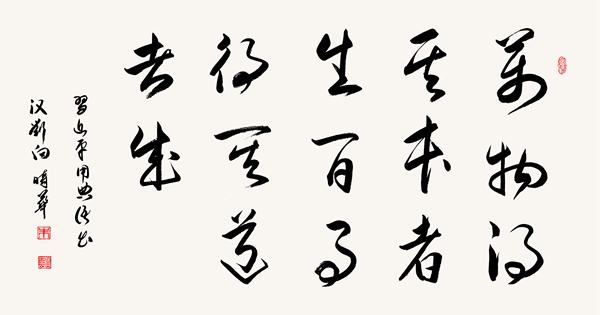 萬物得
其本者
生百事
得其道
者成
習近平用典语出
汉劉向